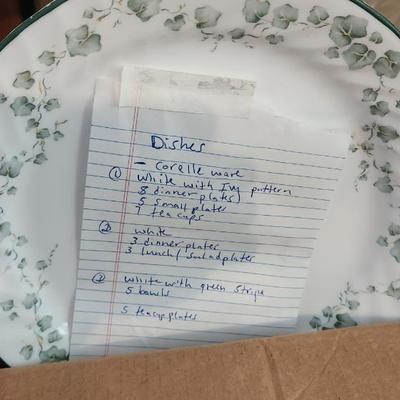 Dishes
- Corelle ware
① White with Ivy pattern
8 dinner plates
5 small plates
7 tea cups
② white
3 dinner plates
3 lunch/salad plates
② white with green stripe
5 bowls
5 teacup plates